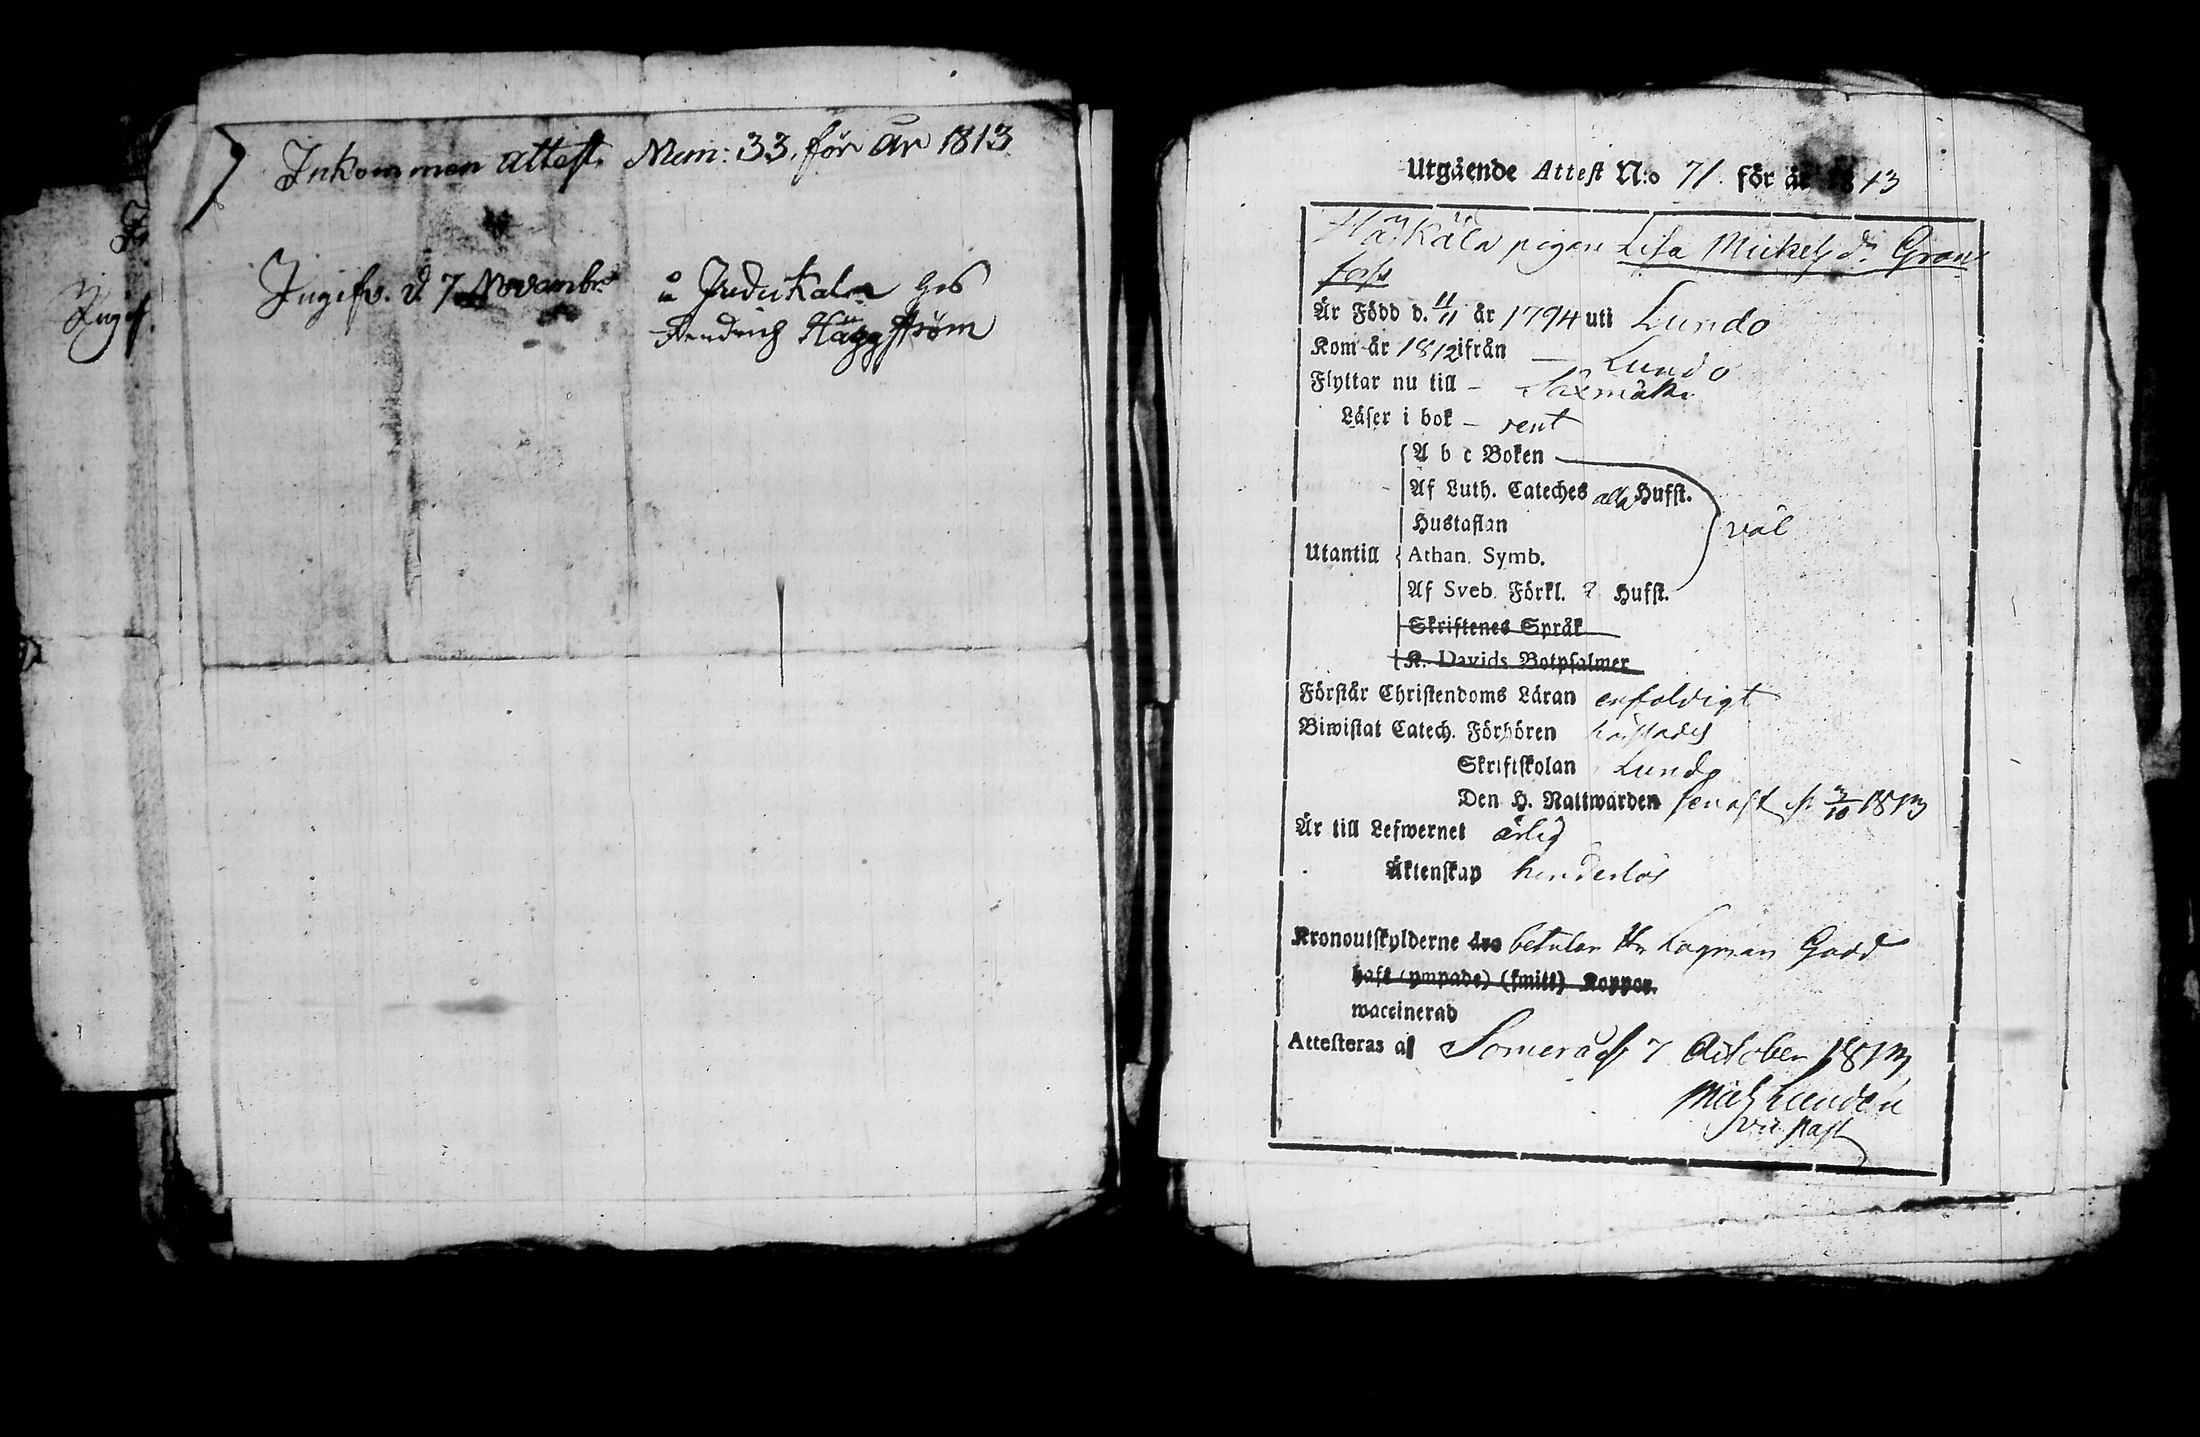 Inkommen attest Num: 33. för år 1813
Ingifv. d. 7 Novembr å Juvekala hos
Hendrich Häggström
Ingif.
Utgående Attest N:o 71. för år 1813
Häkälä pigan Lisa Mickels dr Gran
fors
Är Född d. 11/11 år 1794 uti Lundo
Kom år 1812 ifrån — Lundo
Flyttar nu till – Saxmäki
Läser i bok – rent
A b c Boken
Af Luth. Cateches alla Hufst.
Hustaflan
väl
Utantill Athan. Symb.
Af Sveb. Förkl. 2 Hufst.
Skriftenes Språk
K. Davids Botpsalmer
Förstår Christendoms Läran enfoldigt
Biwistat Catech. Förhören
Skriftskolan Lundo
Den H. Nattwarden senast d. 3/10 1813
Är till Lefwernet ärlig
Äktenskap hinderlös
Kronoutskylderne äro betalar Hr Lagman Gadd
haft (ympade) (smitt) Koppor.
waccinerad
Attesteras af Somero d. 7 October 1813
Mich Lundén
vice past